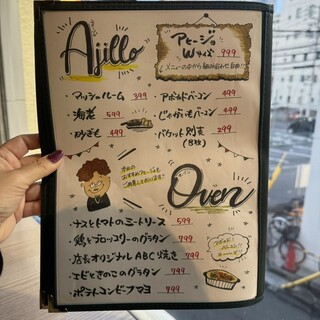 Ajillo
アヒージョ
Wサイズ 999
メニューの中から組み合わせ自由!!
・マッシュルーム 399
・海老 599
・砂ぎも 499
・アボカドベーコン 499
・じゃがいもベーコン 499
・バケット別売 299
(8枚)
Oven
・ナスとトマトのミートソース 599
・鶏とブロッコリーのグラタン 799
・店長オリジナルABC焼き 799
・エビときのこのグラタン 799
・ポテトコンビーフマヨ 799